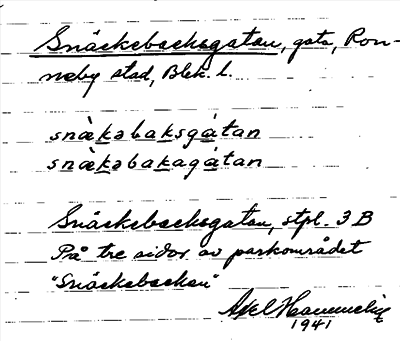 Snäckebacksgatan, gata, Ron-
neby stad, Blek. l.
snä̀kəbaksgátan
snä̀kəbakagátan
Snäckebacksgatan, stpl. 3 B
På tre sidor av parkområdet
"Snäckebacken"
Axel
1941